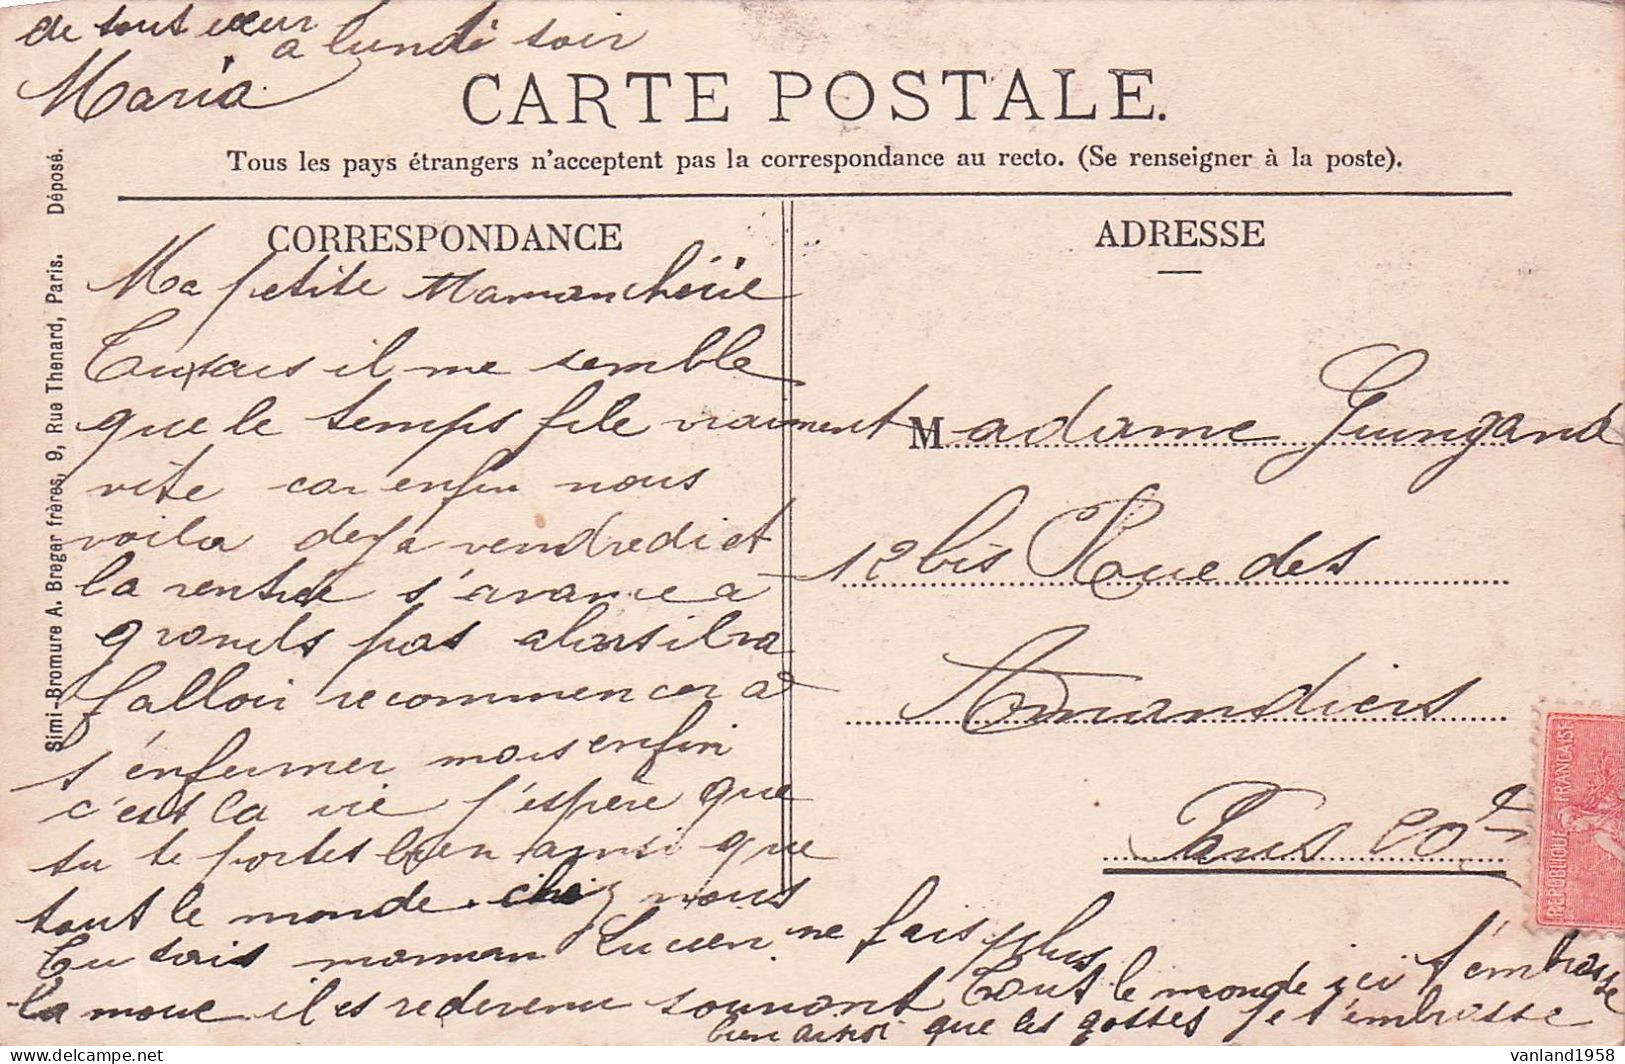 de tout cœur
a lundi soir
Maria
CARTE POSTALE.
Tous les pays étrangers n'acceptent pas la correspondance au recto. (Se renseigner à la poste).
Simi-Bromure A. Breger frères, 9, Rue Thenard, Paris. Déposé.
CORRESPONDANCE
Ma petite Maman chérie
Tu sais il me semble
que le temps file vraiment
vite car enfin nous
voila deja vendredi et
la rentrée s'avance a
grands pas alors il va
falloir recommencer a
s'enfermer mais enfin
c'est la vie j'espère que
tu te portes bien ainsi que
tout le monde chez nous
Tu sais maman Lucien ne fais plus
la moue il es redevenu souriant
Tout le monde ici t'embrasse
bien ainsi que les gosses je t'embrasse
ADRESSE
Madame Guingand
12 bis Rue des
Amandiers
Paris 20e
REPUBLIQUE FRANÇAISE
vanland1958